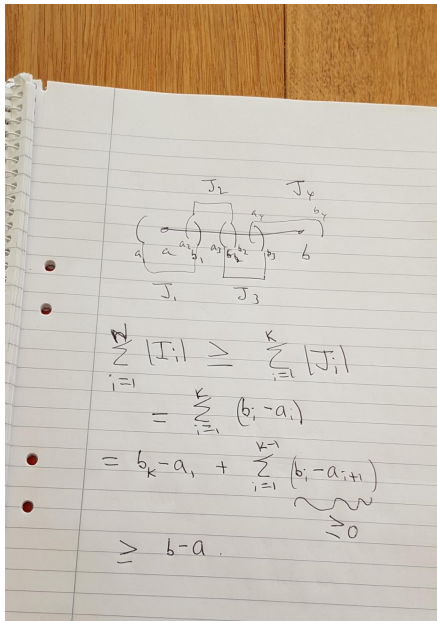 J₂ J₄
a₄ b₄
a₁ a a₂ b₁ a₃ b₂ b₃ b
J₁ J₃
N∑i=1 |Iᵢ| ≥ K∑i=1 |Jᵢ|
= K∑i=1 (bᵢ-aᵢ)
= bₖ-a₁ + K-1∑i=1 (bᵢ-aᵢ₊₁)
≥0
≥ b-a.